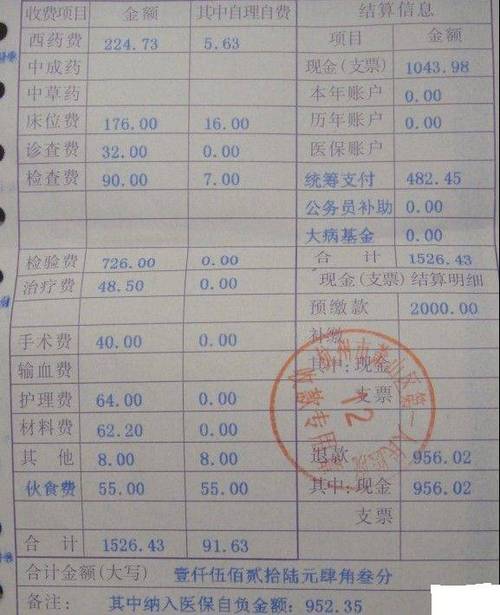 收费项目 金额 其中自理自费 结算信息
西药费 224.73 5.63 项目 金额
中成药 现金(支票) 1043.98
中草药 本年账户 0.00
床位费 176.00 16.00 历年账户 0.00
诊查费 32.00 0.00 医保账户
检查费 90.00 7.00 统筹支付 482.45
公务员补助 0.00
大病基金 0.00
检验费 726.00 0.00 合计 1526.43
治疗费 48.50 0.00 现金(支票)结算明细
预缴款 2000.00
手术费 40.00 0.00 补缴
输血费 其中:现金
护理费 64.00 0.00 支票
材料费 62.20 0.00
其他 8.00 8.00 退款 956.02
伙食费 55.00 55.00 其中:现金 956.02
支票
合计 1526.43 91.63
合计金额(大写) 壹仟伍佰贰拾陆元肆角叁分
备注: 其中纳入医保自负金额:952.35
12
收款专用章